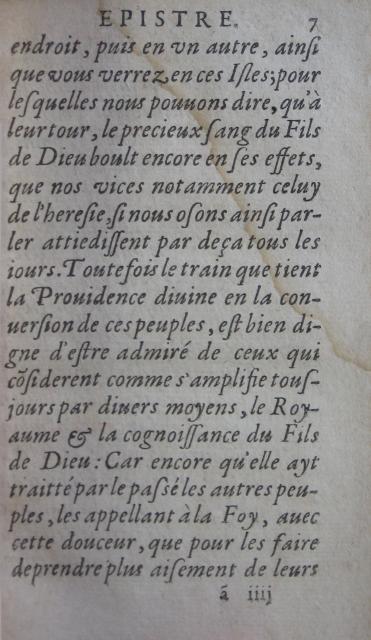 EPISTRE. 7
endroit, puis en vn autre, ainſi
que vous verrez, en ces Iſles; pour
leſquelles nous pouuons dire, qu'à
leur tour, le precieux ſang du Fils
de Dieu boult encore en ſes effets,
que nos vices notamment celuy
de l'hereſie, ſi nous oſons ainſi par-
ler attiediſſent par deça tous les
iours. Toutefois le train que tient
la Prouidence diuine en la con-
uerſion de ces peuples, eſt bien di-
gne d'eſtre admiré de ceux qui
cõſiderent comme s'amplifie touſ-
jours par diuers moyens, le Roy-
aume & la cognoiſſance du Fils
de Dieu: Car encore qu'elle ayt
traitté par le paſsé les autres peu-
ples, les appellant à la Foy, auec
cette douceur, que pour les faire
deprendre plus aiſement de leurs
ã iiij